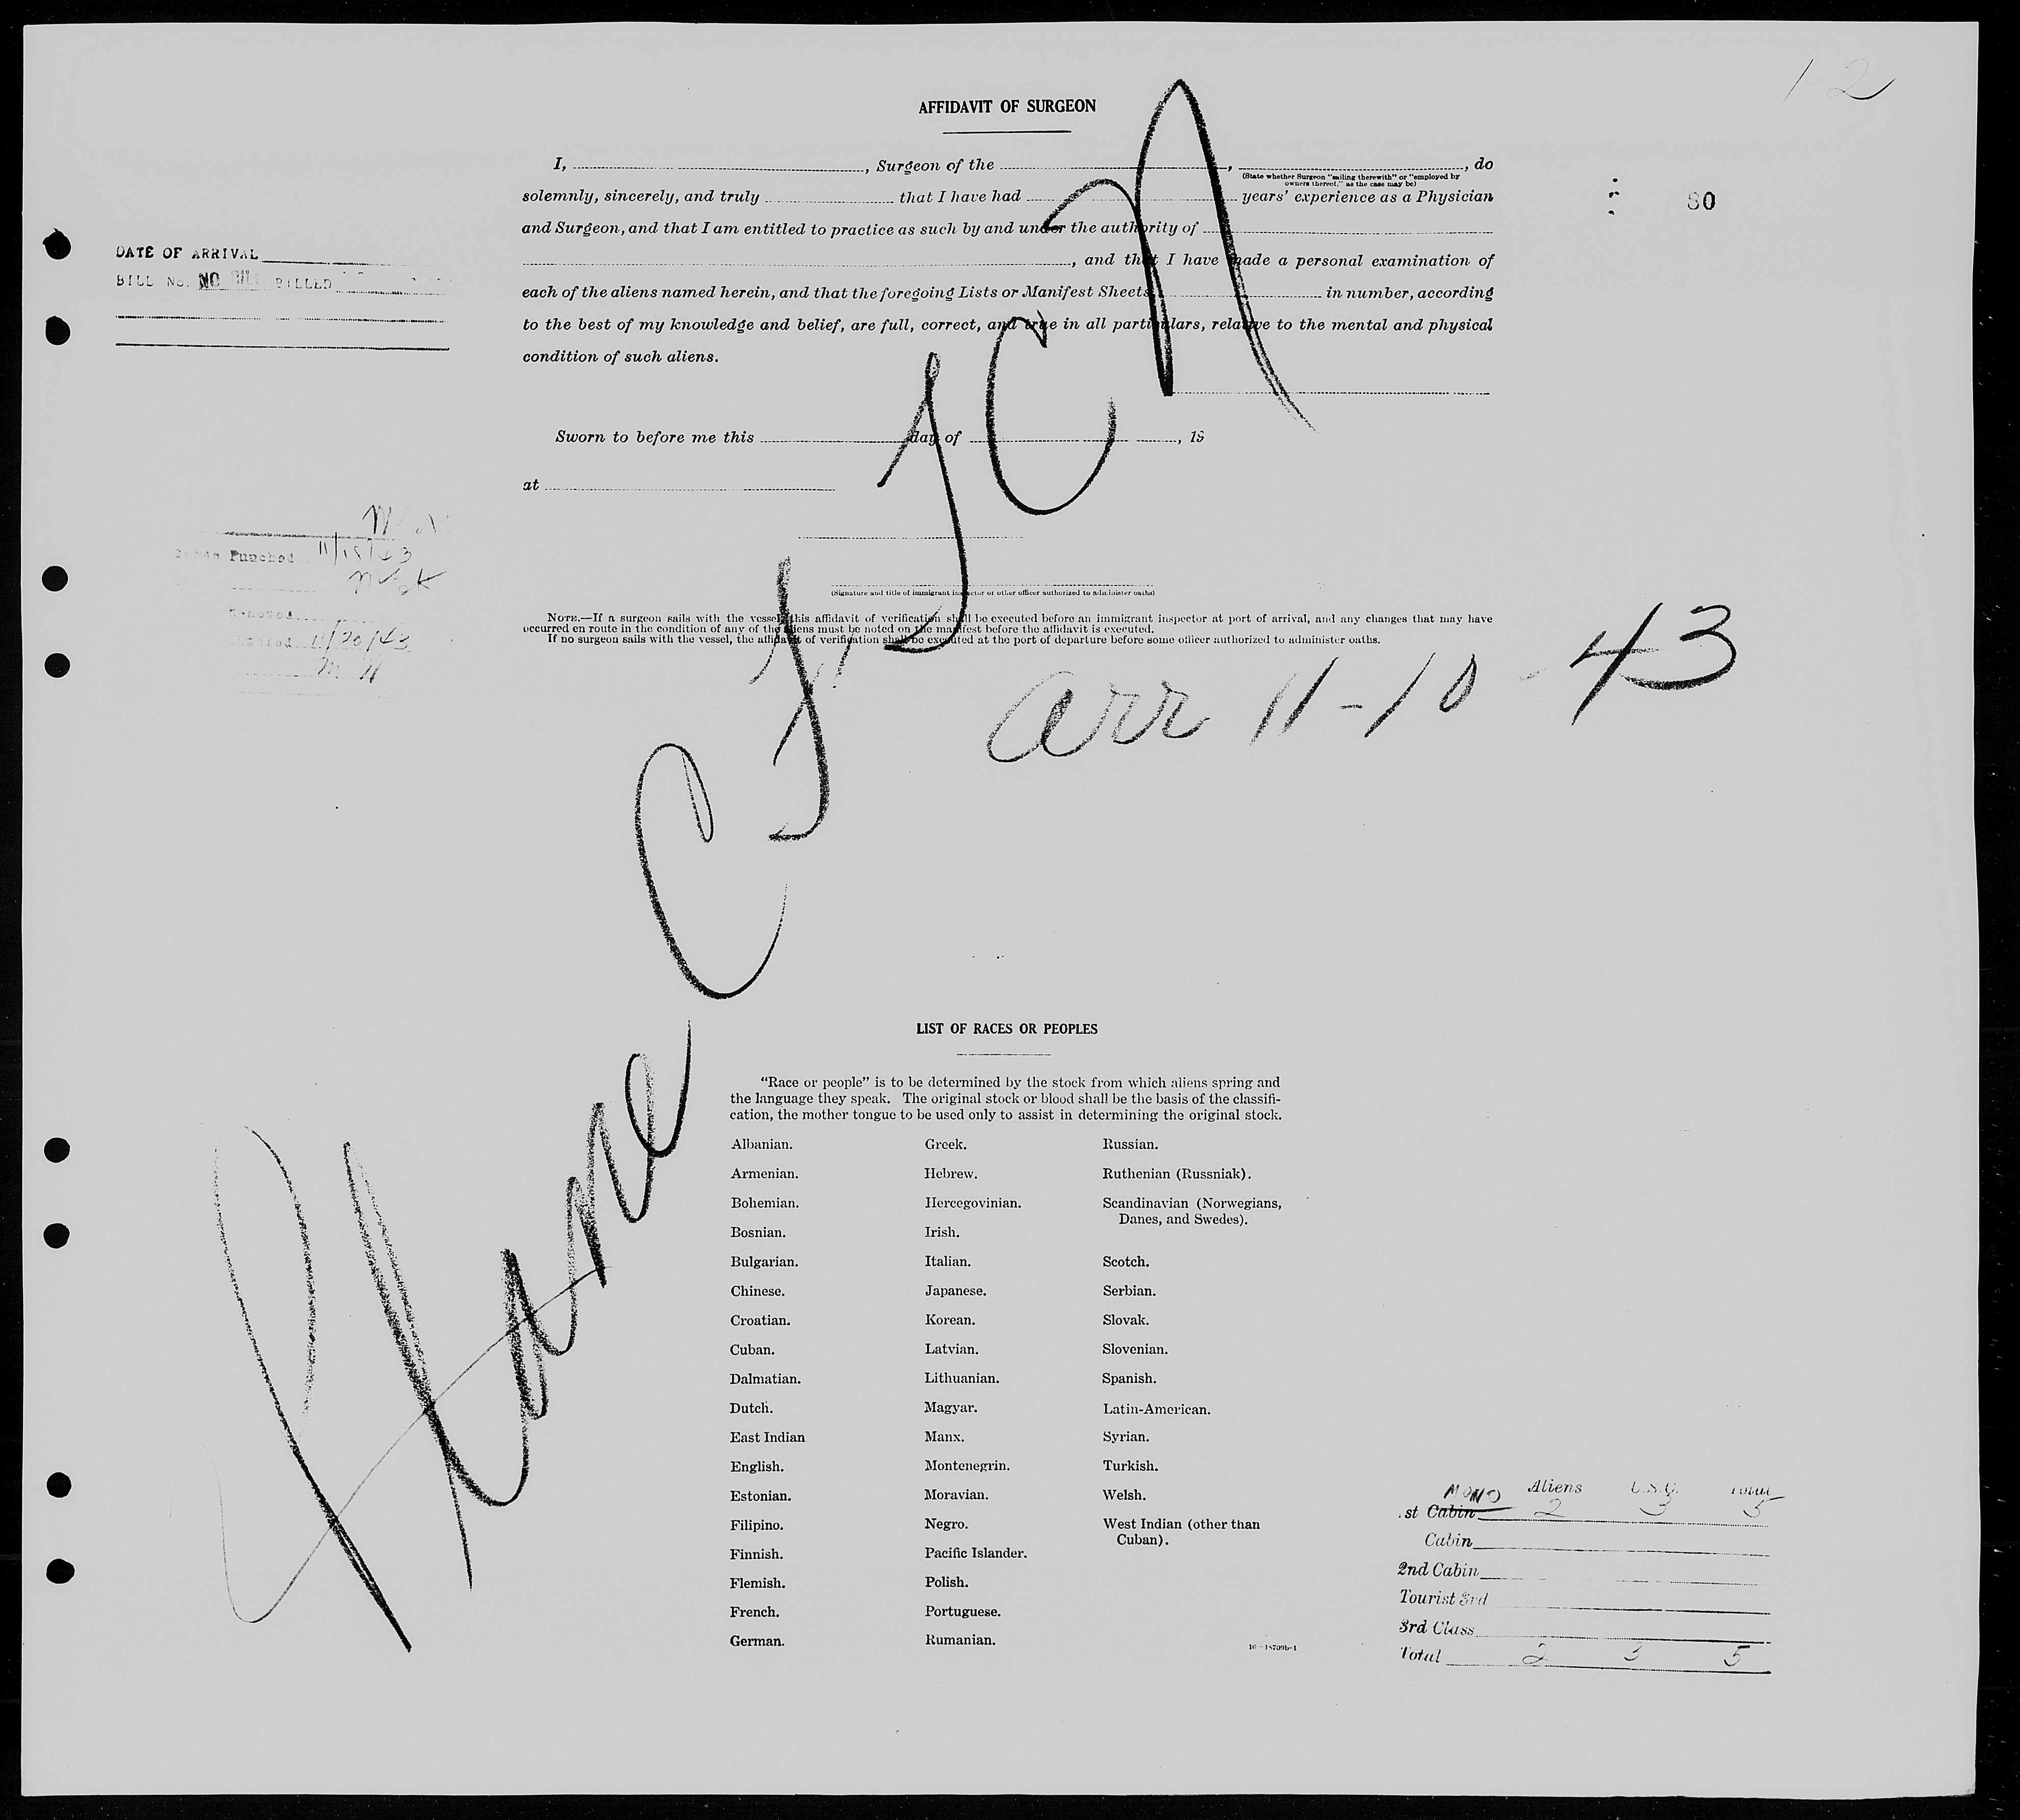 1-2
AFFIDAVIT OF SURGEON
I, , Surgeon of the , , do
(State whether Surgeon "sailing therewith" or "employed by owners thereof," as the case may be)
solemnly, sincerely, and truly that I have had years' experience as a Physician
80
and Surgeon, and that I am entitled to practice as such by and under the authority of
, and that I have made a personal examination of
each of the aliens named herein, and that the foregoing Lists or Manifest Sheets, in number, according
to the best of my knowledge and belief, are full, correct, and true in all particulars, relative to the mental and physical
condition of such aliens.
DATE OF ARRIVAL
BILL NO. NO BILL BILLED
Sworn to before me this day of , 19
at
Punched 11/15/43
11/20/43
(Signature and title of immigrant inspector or other officer authorized to administer oaths)
NOTE.—If a surgeon sails with the vessel, this affidavit of verification shall be executed before an immigrant inspector at port of arrival, and any changes that may have
occurred en route in the condition of any of the aliens must be noted on the manifest before the affidavit is executed.
If no surgeon sails with the vessel, the affidavit of verification shall be executed at the port of departure before some officer authorized to administer oaths.
arr 11-10-43
Plane
LIST OF RACES OR PEOPLES
"Race or people" is to be determined by the stock from which aliens spring and
the language they speak. The original stock or blood shall be the basis of the classifi-
cation, the mother tongue to be used only to assist in determining the original stock.
Albanian. Greek. Russian.
Armenian. Hebrew. Ruthenian (Russniak).
Bohemian. Hercegovinian. Scandinavian (Norwegians,
Danes, and Swedes).
Bosnian. Irish.
Bulgarian. Italian. Scotch.
Chinese. Japanese. Serbian.
Croatian. Korean. Slovak.
Cuban. Latvian. Slovenian.
Dalmatian. Lithuanian. Spanish.
Dutch. Magyar. Latin-American.
East Indian Manx. Syrian.
English. Montenegrin. Turkish.
Estonian. Moravian. Welsh.
Filipino. Negro. West Indian (other than
Cuban).
Finnish. Pacific Islander.
Flemish. Polish.
French. Portuguese.
German. Rumanian.
16—18709b-1
MONO Aliens U.S.C. Total
st Cabin 2 3 5
Cabin
2nd Cabin
Tourist 3rd
3rd Class
Total 2 3 5